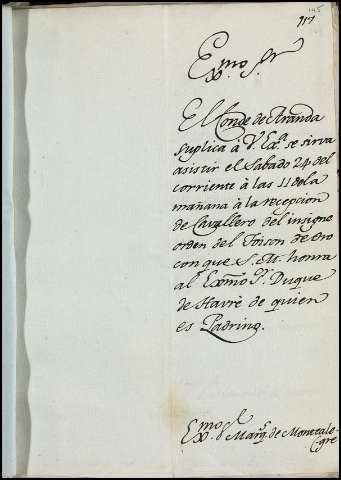 145
117
Exmo. Sr.
El Conde de Aranda
suplica à V. Exa. se sirva
asistir el Sabado 24 del
corriente à las 11 de la
mañana à la recepcion
de Cavallero del insigne
orden del Toison de Oro
con que S. M. honra
al Exmo. Sr. Duque
de Havrè de quien
es Padrino.
Exmo. Sr. Marqs. de Montale-
gre